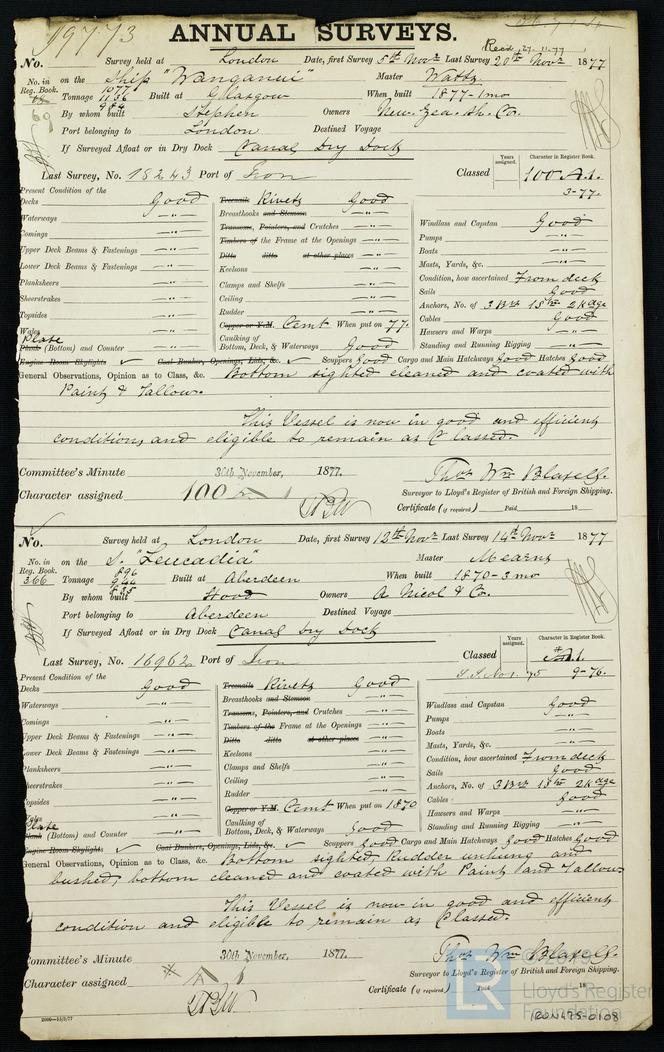 19773
ANNUAL SURVEYS.
Recd 27.11.77
No. Survey held at London Date, first Survey 5th Novr Last Survey 20th Novr 1877
No. in Reg. Book. on the Ship "Wanganui" Master Watts
69 Tonnage 1077 1136 Built at Glasgow When built 1877-1mo
By whom built Stephen Owners New. Zea. Sh. Co.
Port belonging to London Destined Voyage
If Surveyed Afloat or in Dry Dock Canal Dry Dock
Last Survey, No. 18243 Port of Iron Classed Years assigned. Character in Register Book. 100 A.1.
3-77.
Present Condition of the
Decks Good Treenails Rivets Good
Waterways —"— Breasthooks and Stemson —"— Windlass and Capstan Good
Comings —"— Transoms, Pointers, and Crutches —"— Pumps —"—
Upper Deck Beams & Fastenings —"— Timbers of the Frame at the Openings —"— Boats —"—
Lower Deck Beams & Fastenings —"— Ditto ditto at other places —"— Masts, Yards, &c. —"—
Planksheers —"— Keelsons —"— Condition, how ascertained From deck
Sheerstrakes —"— Clamps and Shelfs —"— Sails Good
Topsides —"— Ceiling —"— Anchors, No. of 3 Brs 1 Str 2 Kdge
Wales —"— Rudder —"— Cables Good
Plate Copper or Y.M. Cemt When put on 77. Hawsers and Warps —"—
Plank (Bottom) and Counter —"— Caulking of Bottom, Deck, & Waterways Good Standing and Running Rigging —"—
Engine Room Skylights ✓ Coal Bunkers, Openings, Lids, &c. ✓ Scuppers Good Cargo and Main Hatchways Good Hatches Good
General Observations, Opinion as to Class, &c. Bottom sighted cleaned and coated with
Paint & Tallow.
This Vessel is now in good and efficient
condition, and eligible to remain as Classed.
Committee's Minute 30th November, 1877.
Character assigned 100 A 1
Thos Wm Blaxell.
Surveyor to Lloyd's Register of British and Foreign Shipping.
Certificate (if required) Paid 18
No. Survey held at London Date, first Survey 12th Novr Last Survey 14th Novr 1877
No. in Reg. Book. on the S. "Leucadia" Master Mearns
366 Tonnage 896 944 Built at Aberdeen When built 1870-3mo
By whom built Hood Owners A. Nicol & Co.
Port belonging to Aberdeen Destined Voyage
If Surveyed Afloat or in Dry Dock Canal Dry Dock
Last Survey, No. 16962 Port of Iron Classed Years assigned. Character in Register Book. A1.
S.S. No1. 75 9-76.
Present Condition of the
Decks Good Treenails Rivets Good
Waterways —"— Breasthooks and Stemson —"— Windlass and Capstan Good
Comings —"— Transoms, Pointers, and Crutches —"— Pumps —"—
Upper Deck Beams & Fastenings —"— Timbers of the Frame at the Openings —"— Boats —"—
Lower Deck Beams & Fastenings —"— Ditto ditto at other places —"— Masts, Yards, &c. —"—
Planksheers —"— Keelsons —"— Condition, how ascertained From deck
Sheerstrakes —"— Clamps and Shelfs —"— Sails Good
Topsides —"— Ceiling —"— Anchors, No. of 3 Brs 1 Str 2 Kdge
Wales —"— Rudder —"— Cables Good
Plate Copper or Y.M. Cemt When put on 1870 Hawsers and Warps —"—
Plank (Bottom) and Counter —"— Caulking of Bottom, Deck, & Waterways Good Standing and Running Rigging —"—
Engine Room Skylights ✓ Coal Bunkers, Openings, Lids, &c. ✓ Scuppers Good Cargo and Main Hatchways Good Hatches Good
General Observations, Opinion as to Class, &c. Bottom sighted, Rudder unhung and
bushed, bottom cleaned and coated with Paint and Tallow.
This Vessel is now in good and efficient
condition and eligible to remain as Classed.
Committee's Minute 30th November, 1877.
Character assigned A 1
Thos Wm Blaxell.
Surveyor to Lloyd's Register of British and Foreign Shipping.
Certificate (if required) Paid 18
LR
Lloyd's Register
Foundation
IRON475-0108